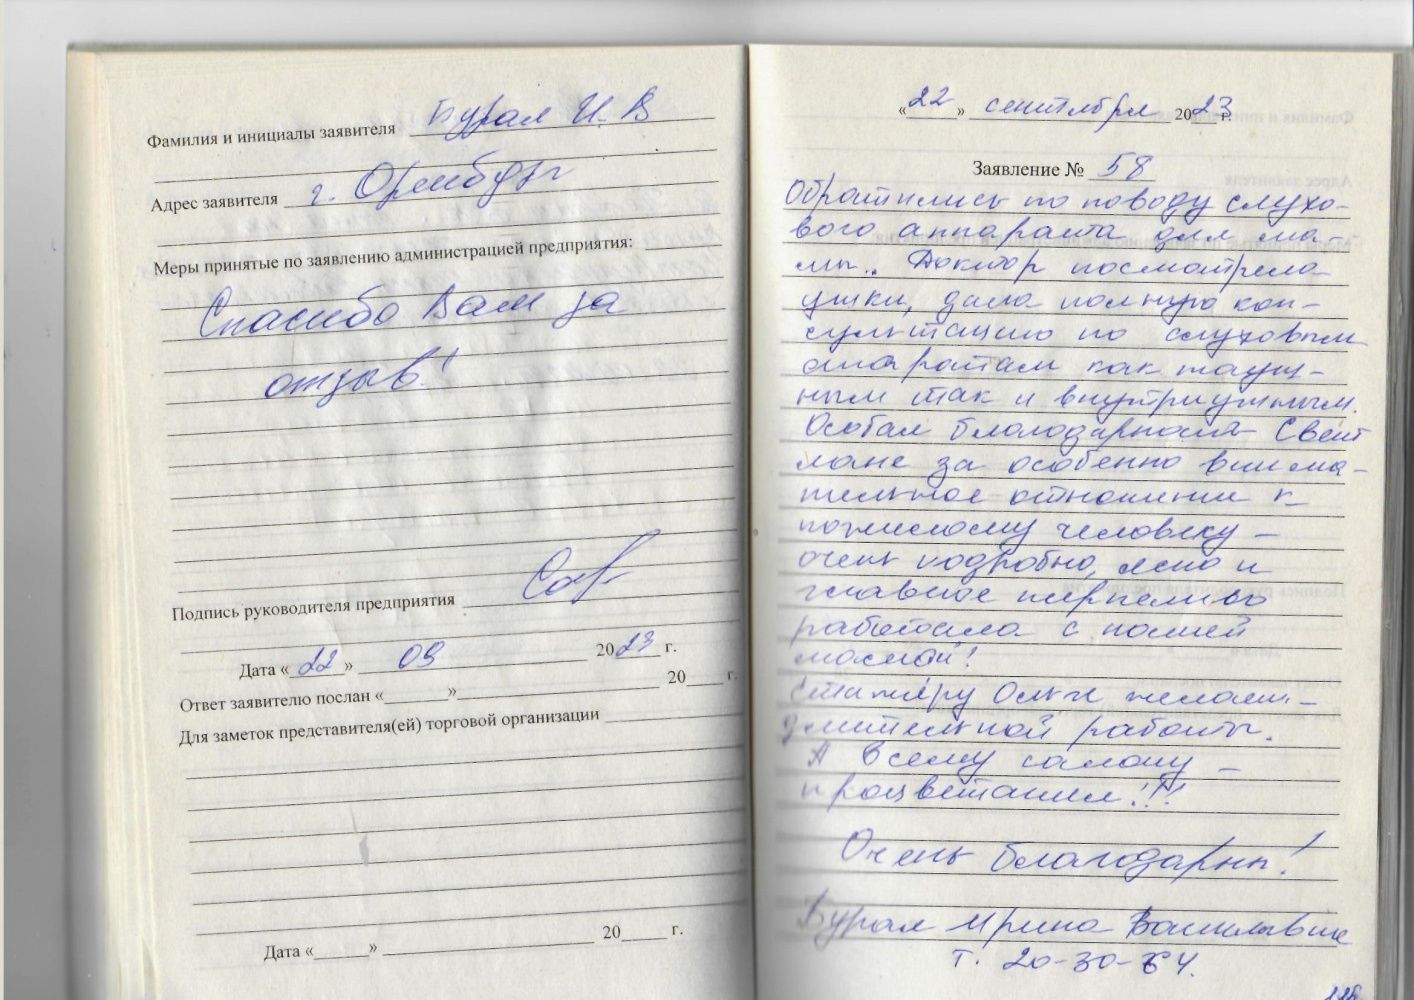 Фамилия и инициалы заявителя Бурая И. В
Адрес заявителя г. Оренбург
Меры принятые по заявлению администрацией предприятия:
Спасибо Вам за
отзыв!
Подпись руководителя предприятия
Дата «22» 09 2023 г.
Ответ заявителю послан «______»____________ 20____ г.
Для заметок представителя(ей) торговой организации
Дата «______»____________ 20____ г.
«22» сентября 2023 г.
Заявление № 58
Обратились по поводу слухо-
вого аппарата для ма-
мы.. Доктор посмотрела
ушки, дала полную кон-
сультацию по слуховым
апаратам как зауш-
ным так и внутриушным.
Особая благодарность Свет
лане за особенно внима-
тельное отношение к
пожилому человеку –
очень подробно, ясно и
главное терпеливо
работала с нашей
мамой!
Стажёру Ольге желаем –
длительной работы.
А всему салону –
процветания!!!
Очень благодарны!
Бурая Ирина Васильевна
т. 20-30-64.